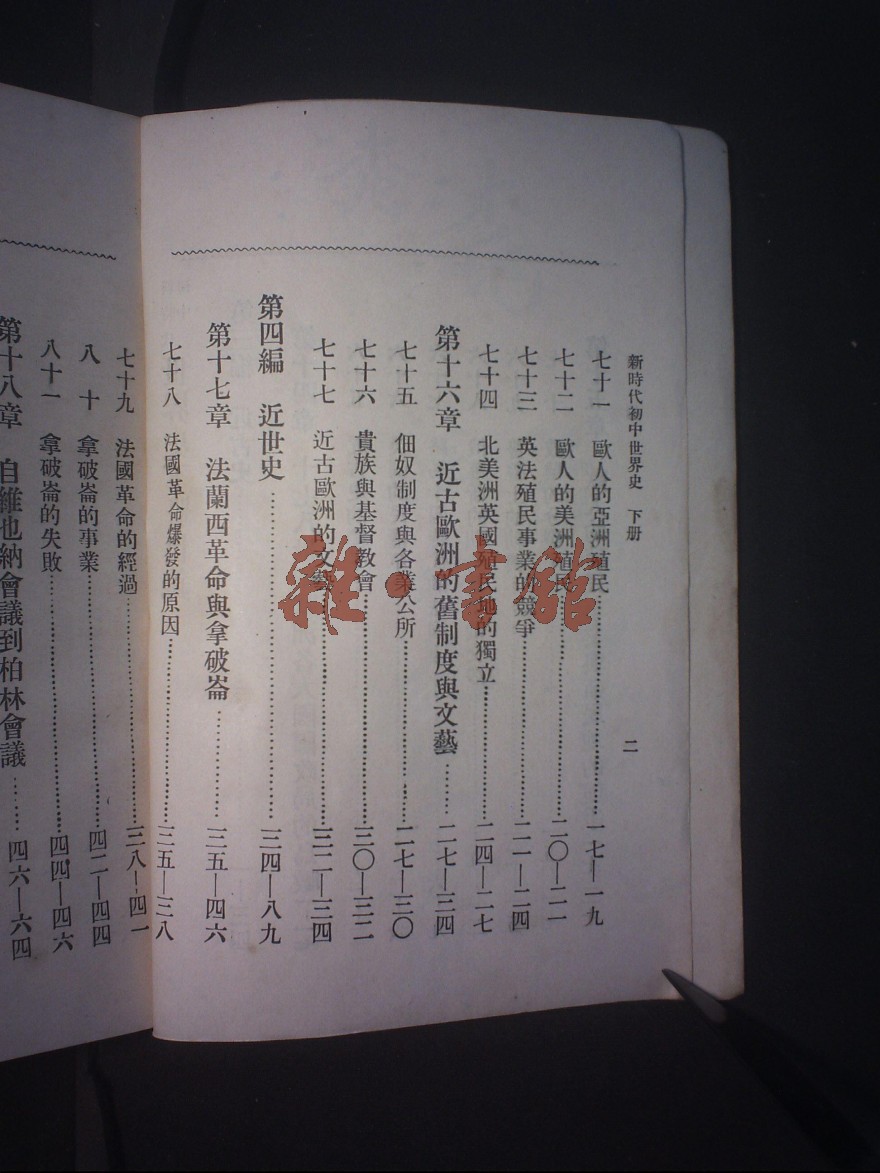 新時代初中世界史 下册
二
七十一 歐人的亞洲殖民……一七—一九
七十二 歐人的美洲殖民……二〇—二一
七十三 英法殖民事業的競爭……二一—二四
七十四 北美洲英國殖民地的獨立……二四—二七
第十六章 近古歐洲的舊制度與文藝……二七—三四
七十五 佃奴制度與各業公所……二七—三〇
七十六 貴族與基督教會……三〇—三二
七十七 近古歐洲的文藝……三二—三四
第四編 近世史……三四—八九
第十七章 法蘭西革命與拿破崙……三五—四六
七十八 法國革命爆發的原因……三五—三八
七十九 法國革命的經過……三八—四一
八十 拿破崙的事業……四二—四四
八十一 拿破崙的失敗……四四—四六
第十八章 自維也納會議到柏林會議……四六—六四
雜·書館